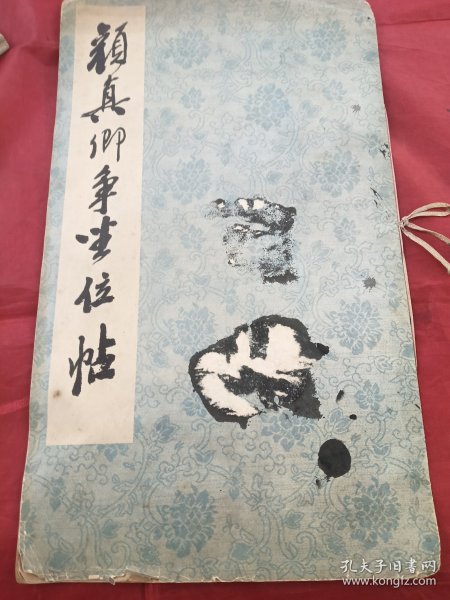 顏真卿争坐位帖
孔夫子旧书网
www.kongfz.com